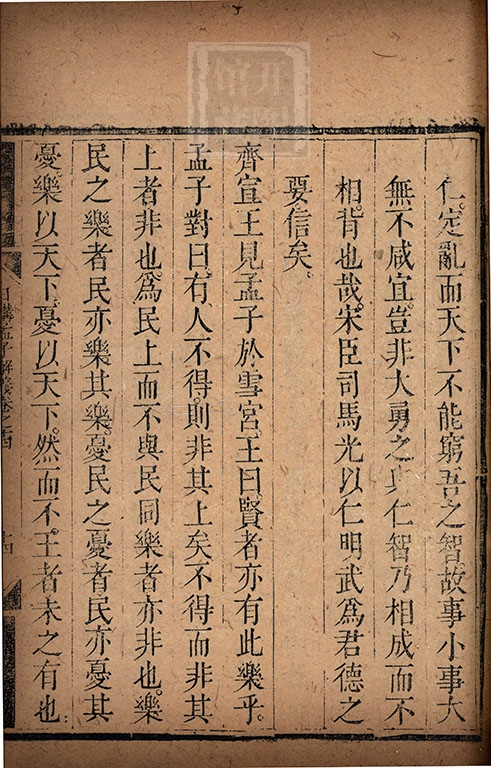 仁。定亂而天下不能窮吾之智。故事小事大
無不咸宜。豈非大勇之與仁智乃相成而不
相背也哉。宋臣司馬光以仁明武爲君德之
要。信矣。
齊宣王見孟子於雪宮。王曰。賢者亦有此樂乎。
孟子對曰。有。人不得。則非其上矣。不得而非其
上者非也。爲民上而不與民同樂者亦非也。樂
民之樂者民亦樂其樂。憂民之憂者民亦憂其
憂。樂以天下。憂以天下。然而不王者未之有也
日講孟子解義卷之四
十四